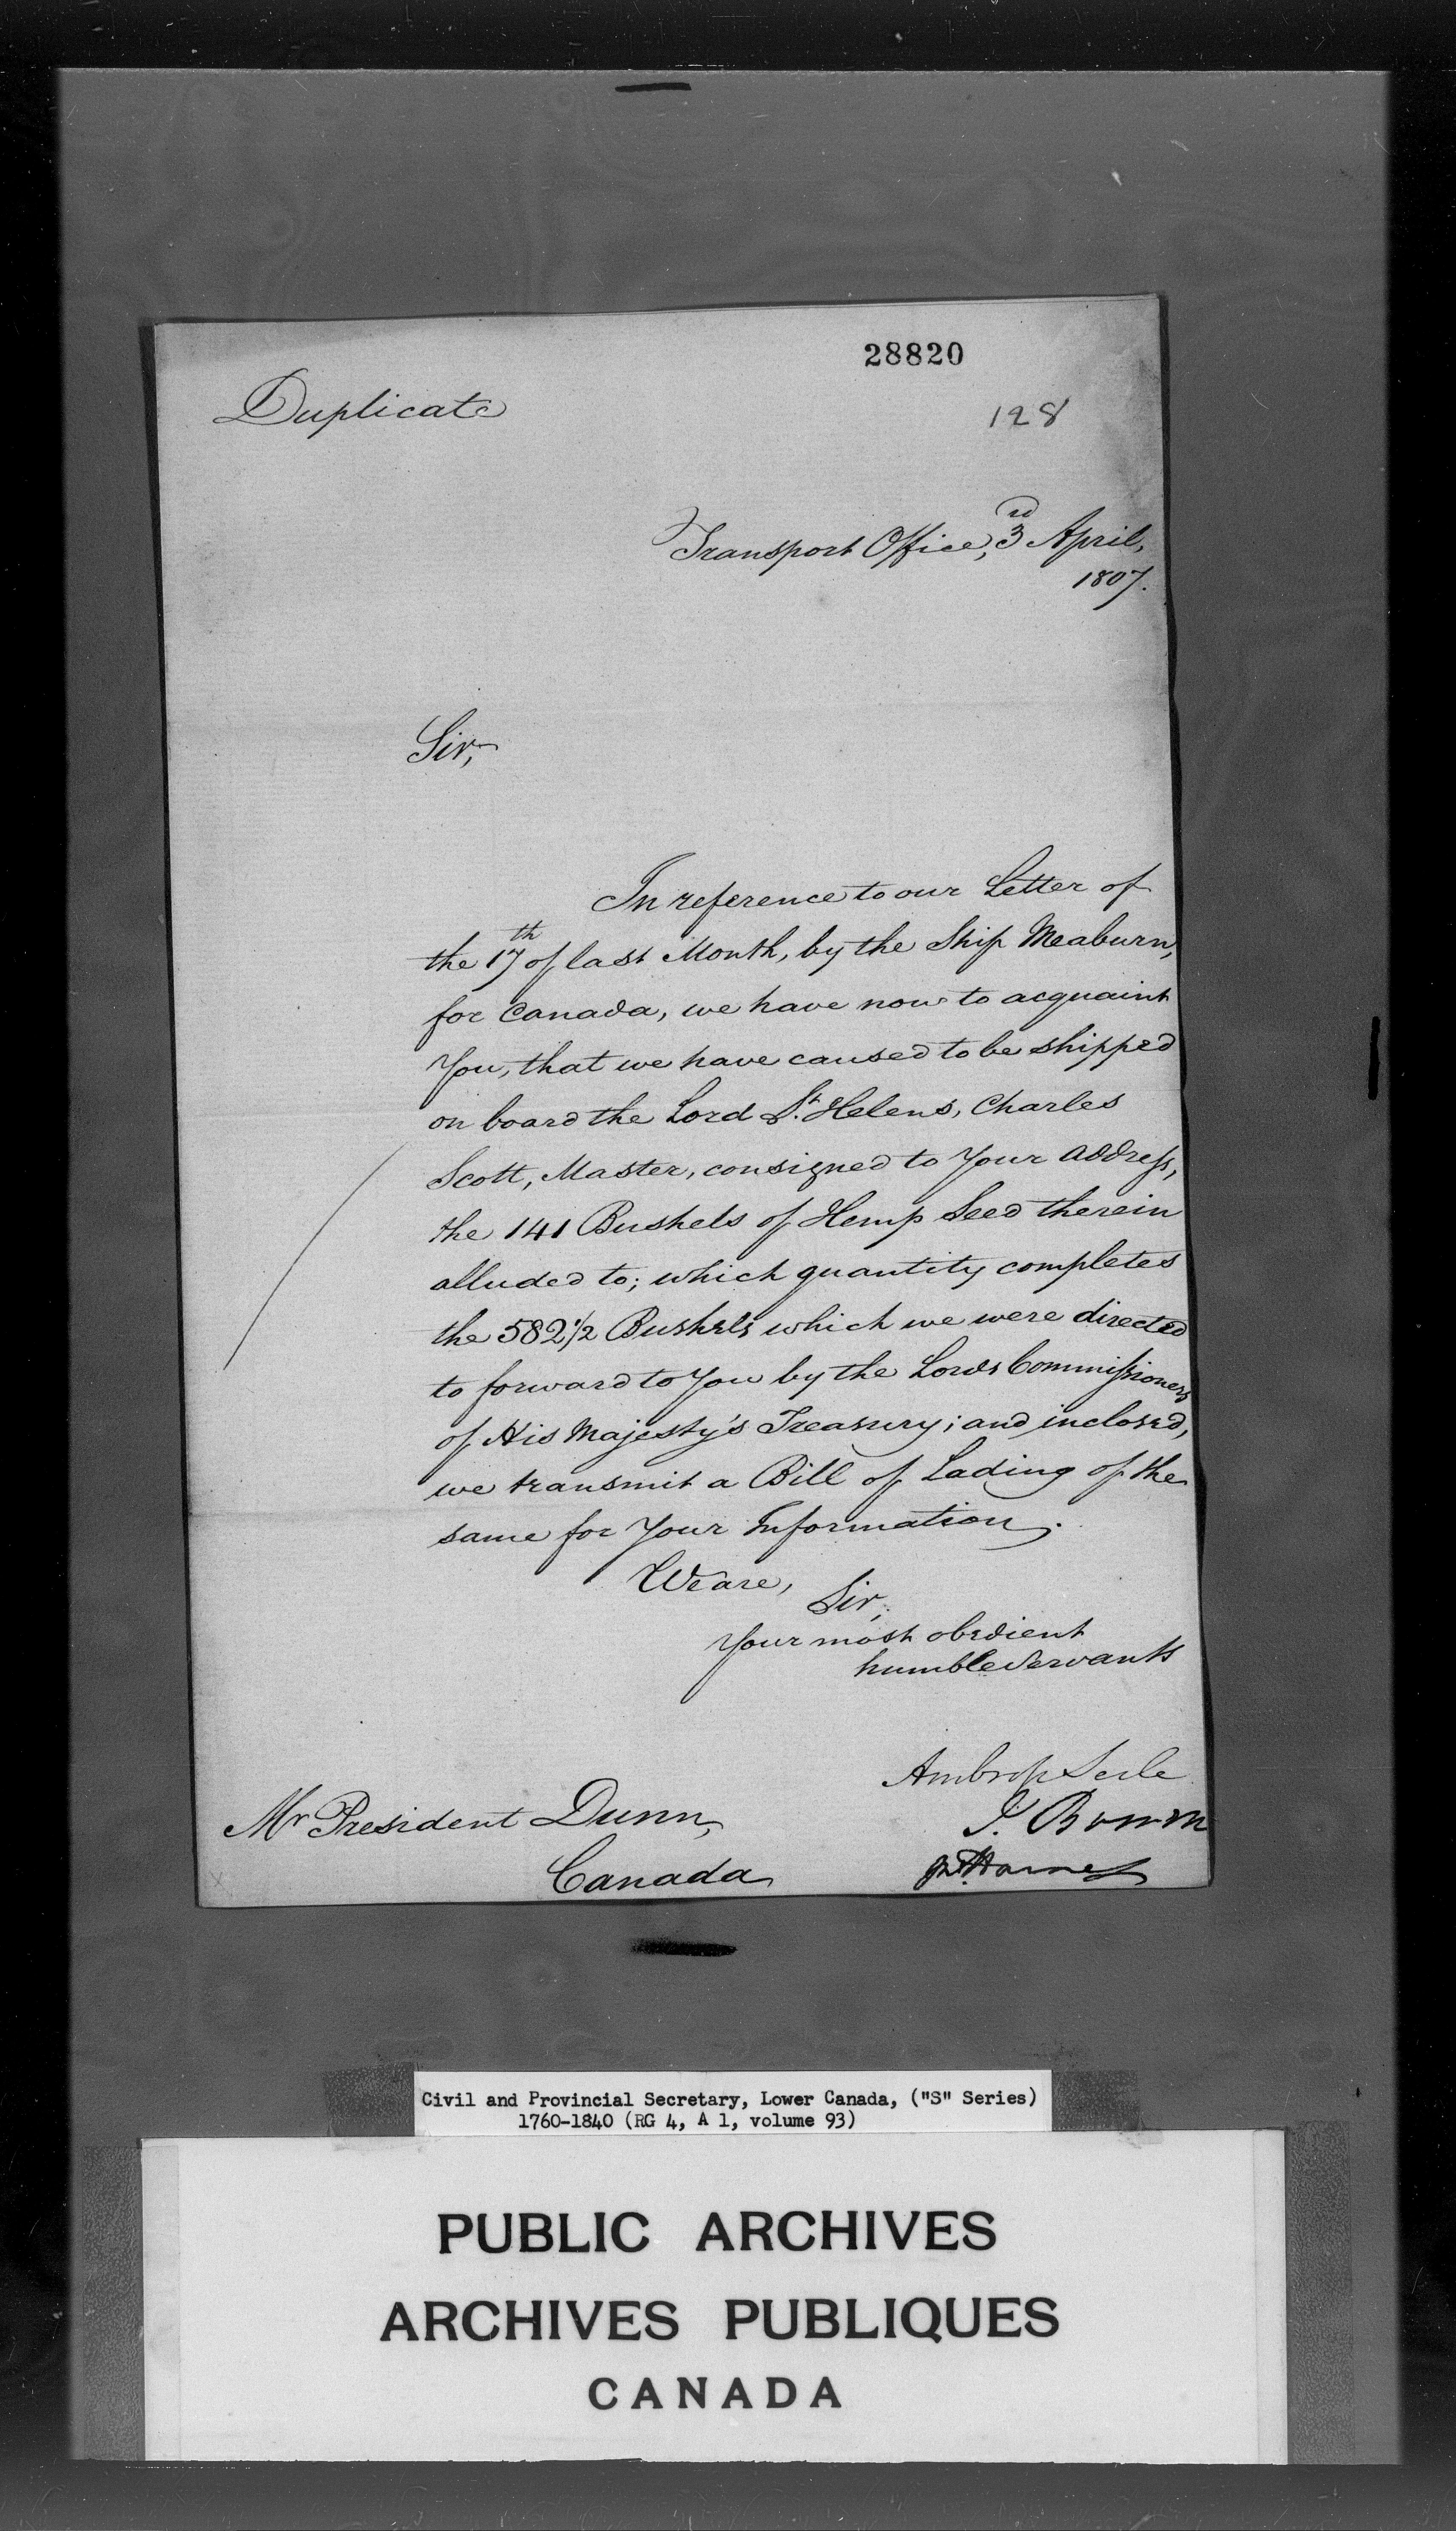 28820
Duplicate
128
Transport Office, 3rd April,
1807.
Sir,
In reference to our Letter of
the 17th of last Month, by the Ship Meaburn,
for Canada, we have now to acquaint
You, that we have caused to be shipped
on board the Lord St. Helens, Charles
Scott, Master, consigned to Your address,
the 141 Bushels of Hemp Seed therein
alluded to; which quantity completes
the 582 1/2 Bushels which we were directed
to forward to You by the Lords Commissioners
of His Majesty's Treasury; and inclosed,
we transmit a Bill of Lading of the
same for Your Information.
We are,
Sir,
Your most obedient
humble Servants
Ambrose Serle
Mr President Dunn,
Canada
Civil and Provincial Secretary, Lower Canada, ("S" Series)
1760-1840 (RG 4, A 1, volume 93)
PUBLIC ARCHIVES
ARCHIVES PUBLIQUES
CANADA